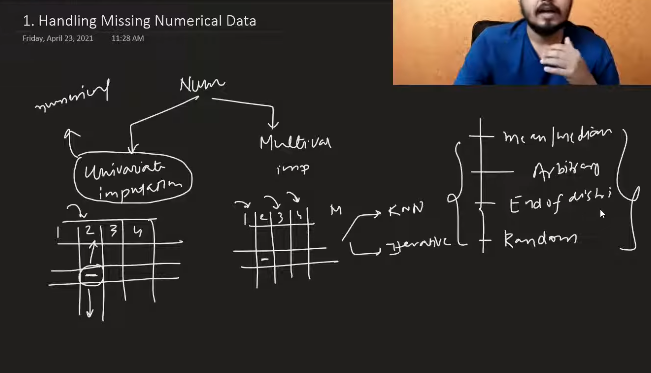 1. Handling Missing Numerical Data
Friday, April 23, 2021 11:28 AM
Num
numerical
Univariate
imputation
Multival
imp
1 2 3 4
-
1 2 3 4
M
-
KNN
Iterative
mean/median
Arbitrary
End of distri
Random